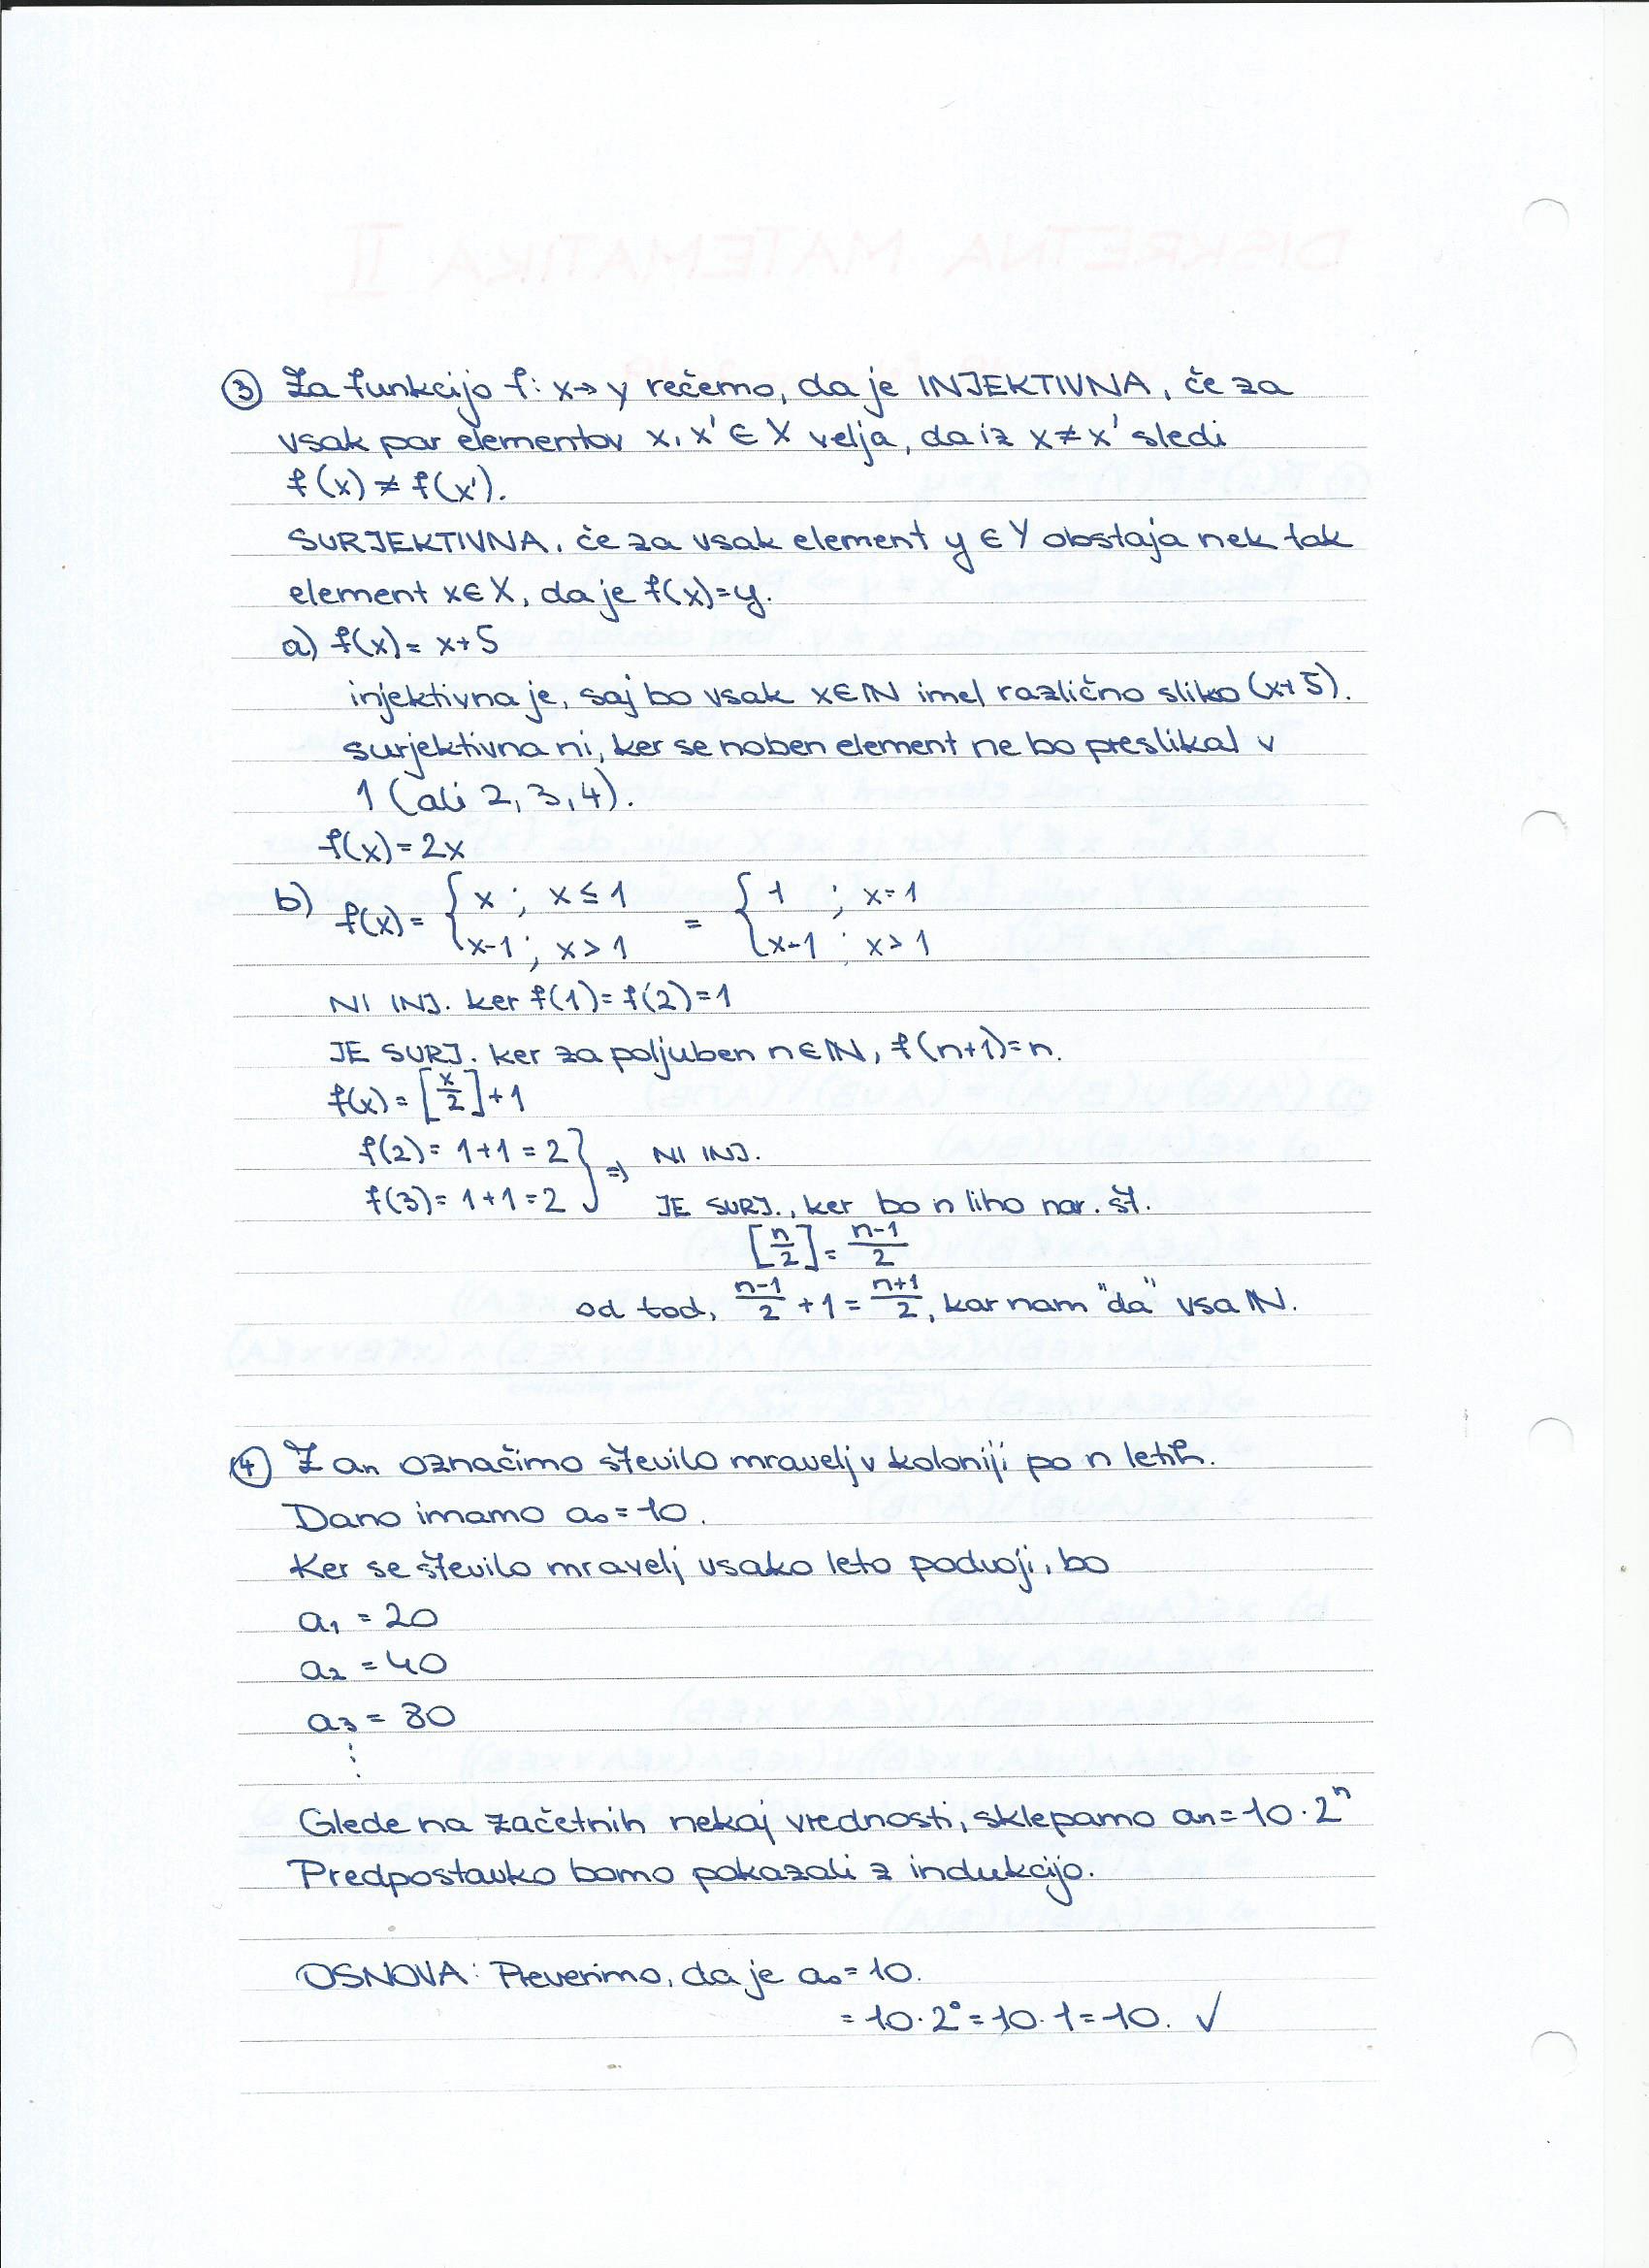 ③ Za funkcijo f: x→y rečemo, da je INJEKTIVNA, če za
vsak par elementov x, x' ∈ X velja, da iz x ≠ x' sledi
f(x) ≠ f(x').
SURJEKTIVNA, če za vsak element y ∈ Y obstaja nek tak
element x∈X, da je f(x)=y.
a) f(x)= x+5
injektivna je, saj bo vsak x∈ℕ imel različno sliko (x+5).
surjektivna ni, ker se noben element ne bo preslikal v
1 (ali 2, 3, 4).
f(x)=2x
b) f(x)= { x ; x≤1 / x-1 ; x>1 = { 1 ; x=1 / x-1 ; x>1
NI INJ. ker f(1)=f(2)=1
JE SURJ. ker za poljuben n∈ℕ, f(n+1)=n.
f(x)=[x/2]+1
f(2)= 1+1=2 } ⇒ NI INJ.
f(3)= 1+1=2 JE SURJ., ker bo n liho nar. št.
[n/2] = (n-1)/2
od tod, (n-1)/2 + 1 = (n+1)/2, kar nam "da" vsa ℕ.
④ Z aₙ označimo število mravelj v koloniji po n letih.
Dano imamo a₀=10.
Ker se število mravelj vsako leto podvoji, bo
a₁ = 20
a₂ = 40
a₃ = 80
⋮
Glede na začetnih nekaj vrednosti, sklepamo aₙ=10·2ⁿ
Predpostavko bomo pokazali z indukcijo.
OSNOVA: Preverimo, da je a₀=10.
= 10·2⁰=10·1=10. ✓